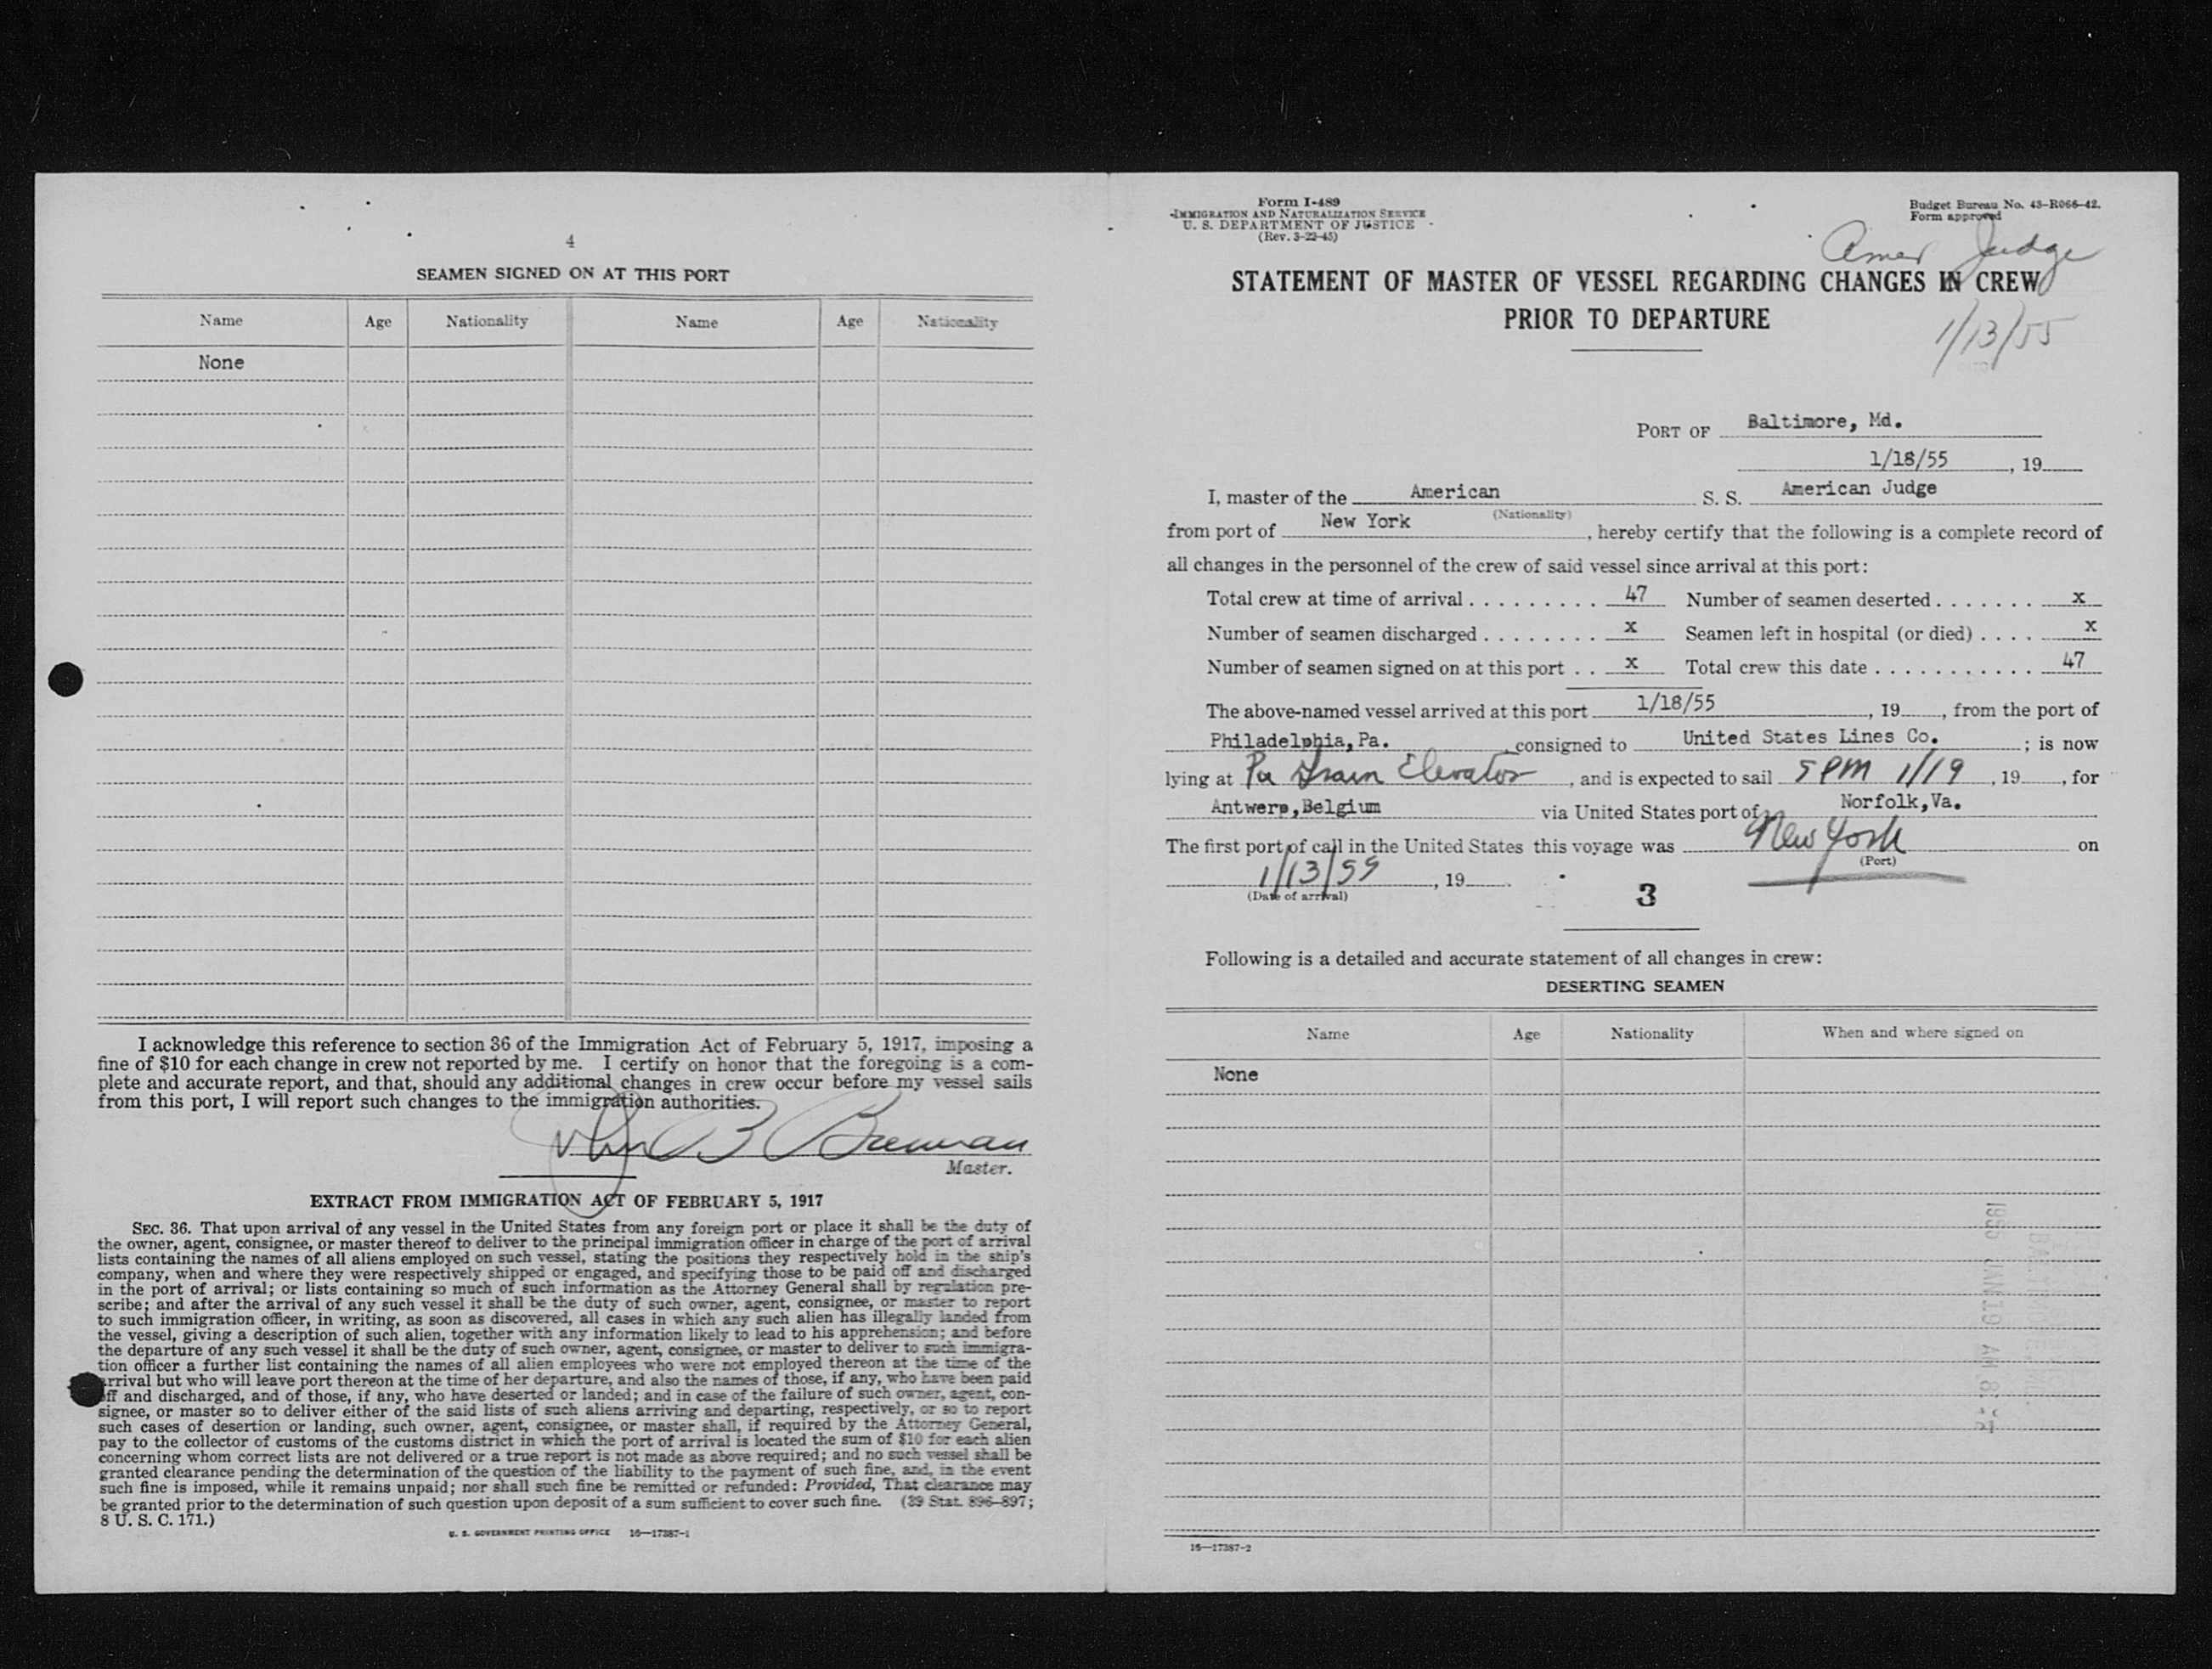 4
SEAMEN SIGNED ON AT THIS PORT
Name Age Nationality Name Age Nationality
None
I acknowledge this reference to section 36 of the Immigration Act of February 5, 1917, imposing a
fine of $10 for each change in crew not reported by me. I certify on honor that the foregoing is a com-
plete and accurate report, and that, should any additional changes in crew occur before my vessel sails
from this port, I will report such changes to the immigration authorities.
John B Brennan
Master.
EXTRACT FROM IMMIGRATION ACT OF FEBRUARY 5, 1917
SEC. 36. That upon arrival of any vessel in the United States from any foreign port or place it shall be the duty of
the owner, agent, consignee, or master thereof to deliver to the principal immigration officer in charge of the port of arrival
lists containing the names of all aliens employed on such vessel, stating the positions they respectively hold in the ship's
company, when and where they were respectively shipped or engaged, and specifying those to be paid off and discharged
in the port of arrival; or lists containing so much of such information as the Attorney General shall by regulation pre-
scribe; and after the arrival of any such vessel it shall be the duty of such owner, agent, consignee, or master to report
to such immigration officer, in writing, as soon as discovered, all cases in which any such alien has illegally landed from
the vessel, giving a description of such alien, together with any information likely to lead to his apprehension; and before
the departure of any such vessel it shall be the duty of such owner, agent, consignee, or master to deliver to such immigra-
tion officer a further list containing the names of all alien employees who were not employed thereon at the time of the
arrival but who will leave port thereon at the time of her departure, and also the names of those, if any, who have been paid
off and discharged, and of those, if any, who have deserted or landed; and in case of the failure of such owner, agent, con-
signee, or master so to deliver either of the said lists of such aliens arriving and departing, respectively, or so to report
such cases of desertion or landing, such owner, agent, consignee, or master shall, if required by the Attorney General,
pay to the collector of customs of the customs district in which the port of arrival is located the sum of $10 for each alien
concerning whom correct lists are not delivered or a true report is not made as above required; and no such vessel shall be
granted clearance pending the determination of the question of the liability to the payment of such fine, and, in the event
such fine is imposed, while it remains unpaid; nor shall such fine be remitted or refunded: Provided, That clearance may
be granted prior to the determination of such question upon deposit of a sum sufficient to cover such fine. (39 Stat. 896-897;
8 U. S. C. 171.)
U. S. GOVERNMENT PRINTING OFFICE 16—17387-1
Form I-489
IMMIGRATION AND NATURALIZATION SERVICE
U. S. DEPARTMENT OF JUSTICE
(Rev. 3-22-45)
Budget Bureau No. 43-R066-42.
Form approved
Amer Judge
STATEMENT OF MASTER OF VESSEL REGARDING CHANGES IN CREW
PRIOR TO DEPARTURE
1/13/55
PORT OF Baltimore, Md.
1/18/55 , 19
I, master of the American S. S. American Judge
(Nationality)
from port of New York , hereby certify that the following is a complete record of
all changes in the personnel of the crew of said vessel since arrival at this port:
Total crew at time of arrival . . . . . . . . . 47 Number of seamen deserted . . . . . . . x
Number of seamen discharged . . . . . . . . x Seamen left in hospital (or died) . . . . x
Number of seamen signed on at this port . . x Total crew this date . . . . . . . . . . . 47
The above-named vessel arrived at this port 1/18/55 , 19 , from the port of
Philadelphia,Pa. consigned to United States Lines Co. ; is now
lying at Pa Grain Elevator , and is expected to sail 5 PM 1/19 , 19 , for
Antwerp,Belgium via United States port of Norfolk,Va.
The first port of call in the United States this voyage was New York on
(Port)
1/13/55 , 19 .
(Date of arrival)
3
Following is a detailed and accurate statement of all changes in crew:
DESERTING SEAMEN
Name Age Nationality When and where signed on
None
1955 JAN 19 AM 8
16—17387-2